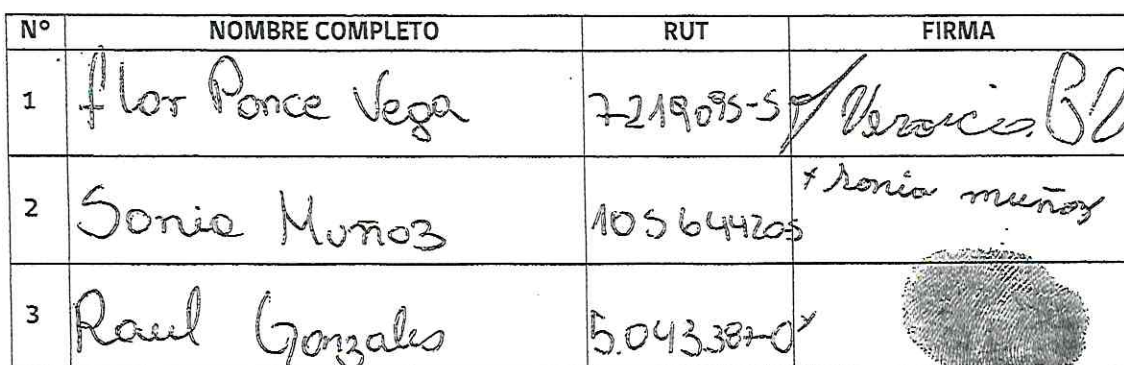 Nº NOMBRE COMPLETO RUT FIRMA
1 Flor Ponce Vega 7219095-5
2 Sonia Muñoz 105644205 x Sonia muñoz
3 Raul Gonzales 5.043.387-0